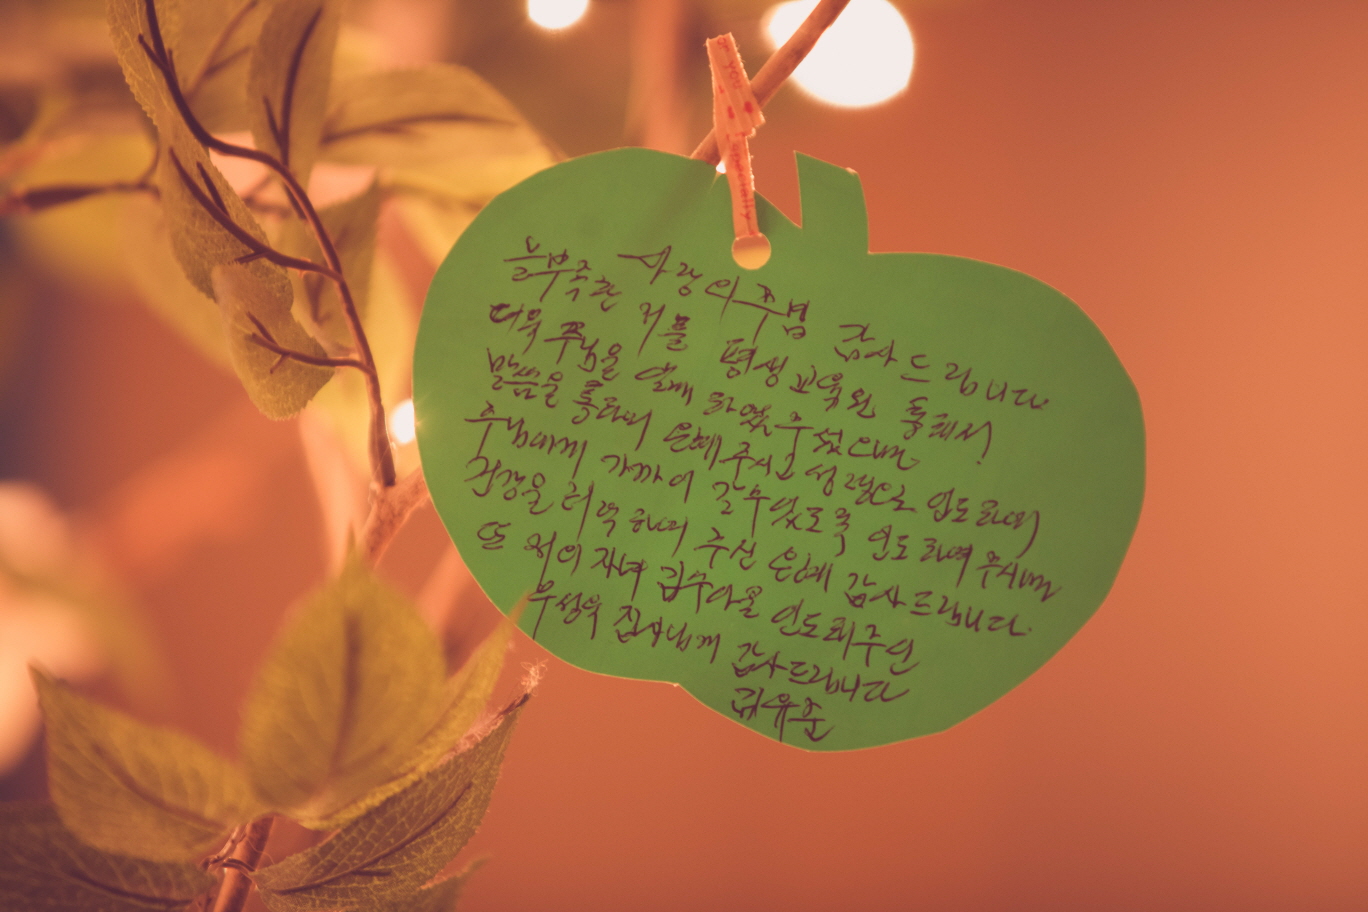 사랑의 주님 감사드립니다
늘 부족한 저를 평생교육원 통해서
더욱 주님을 알게 하였주셨으며
말씀을 통하여 은혜주시고 성령으로 인도하여
주님에게 가까이 갈 수 있도록 인도하여 주시며
건강을 허락하여 주신 은혜 감사드립니다.
또 저의 자녀 김수아을 인도해주신
우성욱 집사님께 감사드립니다
김유준